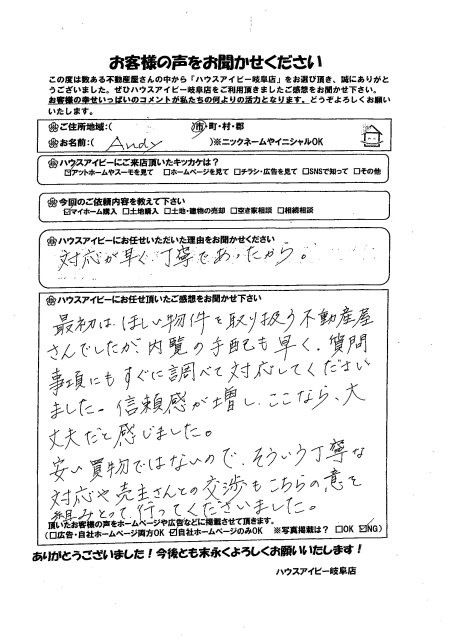 お客様の声をお聞かせください
この度は数ある不動産屋さんの中から「ハウスアイビー岐阜店」をお選び頂き、誠にありがと
うございました。ぜひハウスアイビー岐阜店をご利用頂きましたご感想をお聞かせ下さい。
お客様の幸せいっぱいのコメントが私たちの何よりの活力となります。どうぞよろしくお願い
いたします。
ご住所地域:( )市・町・村・郡
お名前:( Andy )※ニックネームやイニシャルOK
ハウスアイビーにご来店頂いたキッカケは?
☑アットホームやスーモを見て □ホームページを見て □チラシ・広告を見て □SNSで知って □その他
今回のご依頼内容を教えて下さい
☑マイホーム購入 □土地購入 □土地・建物の売却 □空き家相談 □相続相談
ハウスアイビーにお任せいただいた理由をお聞かせください
対応が早く、丁寧であったから。
ハウスアイビーにお任せ頂いたご感想をお聞かせ下さい
最初は、ほしい物件を取り扱う不動産屋
さんでしたが、内覧の手配も早く、質問
事項にもすぐに調べて対応してください
ました。信頼感が増し、ここなら、大
丈夫だと感じました。
安い買物ではないので、そういう丁寧な
対応や売主さんとの交渉もこちらの意を
組みとって、行ってくださいました。
頂いたお客様の声をホームページや広告などに掲載させて頂きます。
(□広告・自社ホームページ両方OK ☑自社ホームページのみOK ※写真掲載は? □OK ☑NG)
ありがとうございました!今後とも末永くよろしくお願いいたします!
ハウスアイビー岐阜店